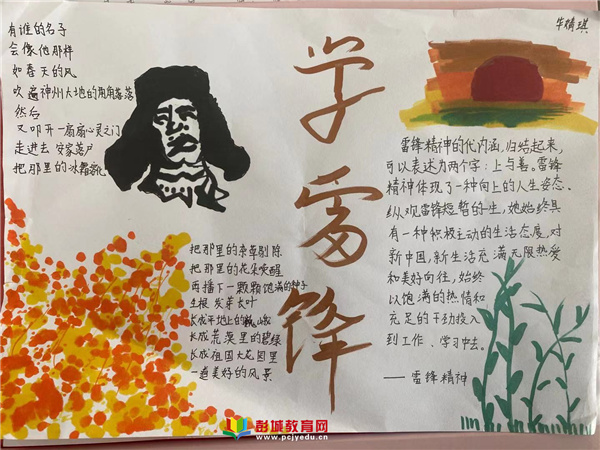 有谁的名字
会像他那样
如春天的风
吹遍神州大地的角角落落
然后
又叩开一扇扇心灵之门
走进去 安家落户
把那里的冰霜融化
学雷锋
把那里的杂草剔除
把那里的花朵唤醒
再播下一颗颗饱满的种子
生根 发芽 大叶
长成平地上的巍峨
长成荒漠里的碧绿
长成祖国大花园里
一道美好的风景
华婧琪
雷锋精神的代内涵,归结起来,
可以表述为两个字:上与善。雷锋
精神体现了一种向上的人生姿态、
纵观雷锋短暂的一生,她始终具
有一种积极主动的生活态展,对
新中国,新生活充满无限热爱
和美好向往,始终
以饱满的热情和
充足的干劲投入
到工作、学习中去。
——雷锋精神
彭城教育网
www.pcjyedu.cn